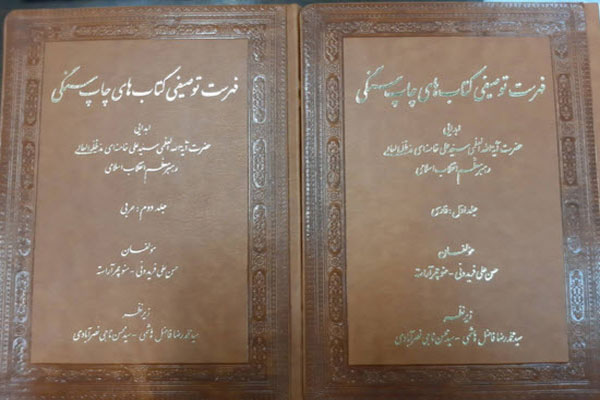 فهرست توصیفی کتاب های چاپ سنگی
اهدایی
حضرت آیه الله العظمی سید علی خامنه ای مدظله العالی
رهبر معظم انقلاب اسلامی
جلد اول : فارسی
مؤلفان
حسن علی فریدونی - منوچهر آراسته
زیر نظر
سید محمد رضا فاضل هاشمی - سید محسن ناجی نصرآبادی
فهرست توصیفی کتاب های چاپ سنگی
اهدایی
حضرت آیه الله العظمی سید علی خامنه ای مدظله العالی
رهبر معظم انقلاب اسلامی
جلد دوم : عربی
مؤلفان
حسن علی فریدونی - منوچهر آراسته
زیر نظر
سید محمد رضا فاضل هاشمی - سید محسن ناجی نصرآبادی